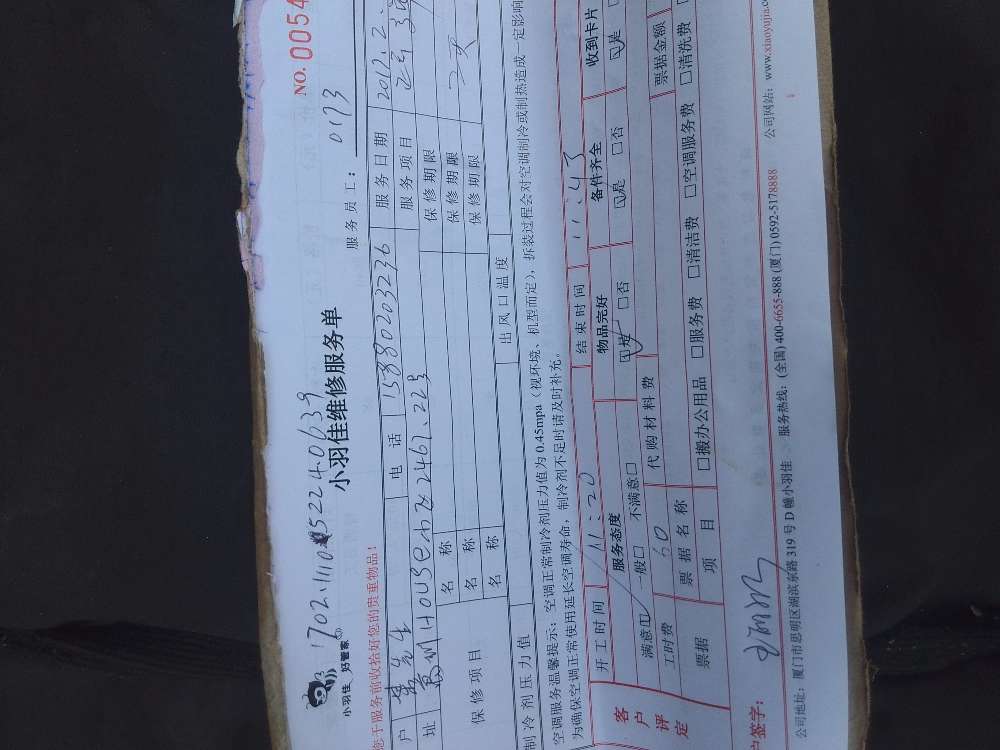 NO.0054
1702.1110
小羽佳 好管家
小羽佳维修服务单
服务员工： 0173
您于服务前收拾好您的贵重物品！
户
电 话 15880203236
服务日期 2017.2
址 House
服务项目
保修项目
名 称
保修期限
名 称
保修期限
名 称
保修期限
制冷剂压力值
出风口温度
空调服务温馨提示：空调正常制冷剂压力值为0.45mpa（视环境、机型而定），拆装过程会对空调制冷或制热造成一定影响
为确保空调正常使用延长空调寿命，制冷剂不足时请及时补充。
客户评定
开工时间 11:20
结束时间 11:43
服务态度
物品完好
备件齐全
收到卡片
满意☑ 一般□ 不满意□
☑是 □否
☑是 □否
☑是
工时费 60
代购材料费
票据
票据名称
票据金额
项 目
□搬办公用品 □服务费 □清洁费 □空调服务费 □清洗费
户签字：
公司地址：厦门市思明区湖滨东路319号D幢小羽佳
服务热线：(全国) 400-6655-888 (厦门) 0592-5178888
公司网站： www.xiaoyujia.co